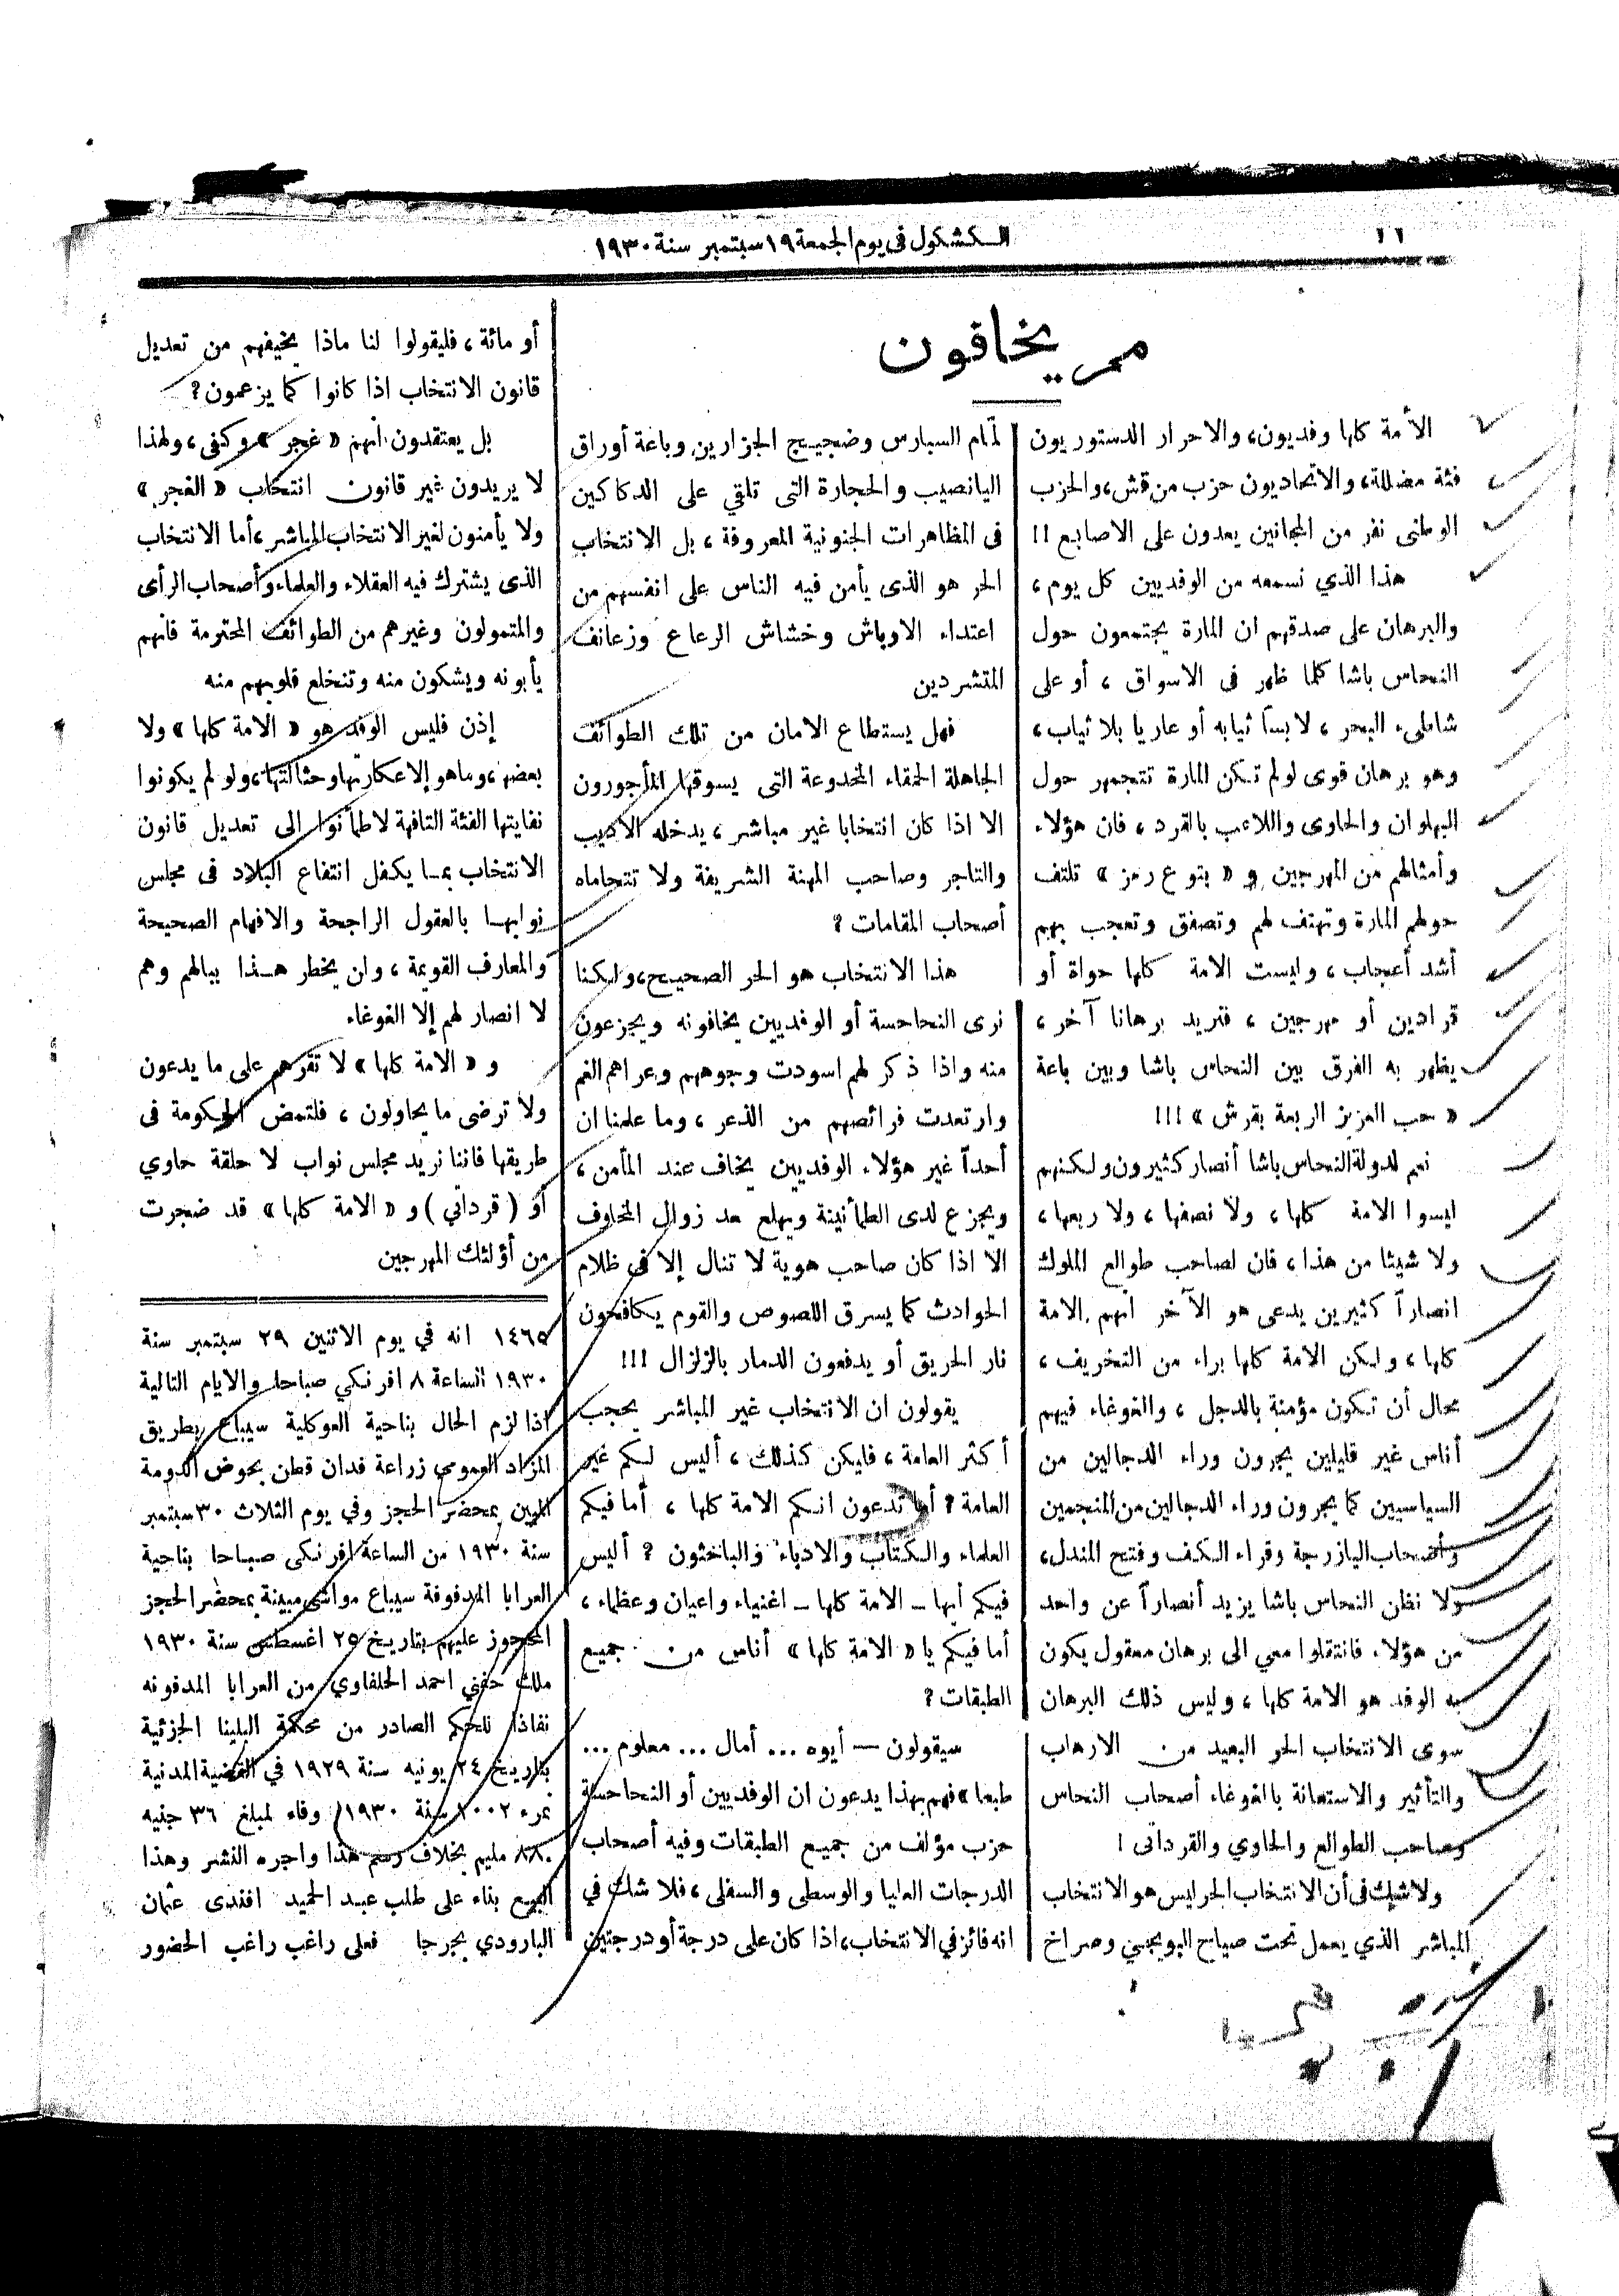 ١١
الكشكول فى يوم الجمعة ١٩ سبتمبر سنة ١٩٣٠
مم يخافون
الأمة كلها وفديون، والاحرار الدستوريون
فئة مضللة، والاتحاديون حزب من قش، والحزب
الوطنى نفر من المجانين يعدون على الاصابع !!
هذا الذي نسمعه من الوفديين كل يوم،
والبرهان على صدقهم ان المارة يجتمعون حول
النحاس باشا كلما ظهر فى الاسواق ، أو على
شاطىء البحر ، لابساً ثيابه أو عاريا بلا ثياب،
وهو برهان قوى لو لم تكن المارة تتجمهر حول
البهلوان والحاوى واللاعب بالقرد ، فان هؤلاء
وأمثالهم من المهرجين و « بتوع رمز » تلتف
حولهم المارة وتهتف لهم وتصفق وتعجب بهم
أشد أعجاب ، وليست الامة كلها حواة أو
قرادين أو مهرجين ، فنريد برهانا آخر ،
يظهر به الفرق بين النحاس باشا وبين باعة
« حب العزيز الربعة بقرش » !!!
نعم لدولة النحاس باشا أنصار كثيرون ولكنهم
ليسوا الامة كلها ، ولا نصفها ، ولا ربعها ،
ولا شيئا من هذا ، فان لصاحب طوالع الملوك
انصاراً كثيرين يدعى هو الآخر انهم الامة
كلها ، ولكن الامة كلها براء من التخريف ،
محال أن تكون مؤمنة بالدجل ، والغوغاء فيهم
أناس غير قليلين يجرون وراء الدجالين من
السياسيين كما يجرون وراء الدجالين من المنجمين
وأصحاب اليازرجة وقراء الكف وفتح المندل،
ولا نظن النحاس باشا يزيد أنصاراً عن واحد
من هؤلاء. فانتقلوا معي الى برهان معقول يكون
به الوفد هو الامة كلها ، وليس ذلك البرهان
سوى الانتخاب الحر البعيد من الارهاب
والتأثير والاستعانة بالغوغاء أصحاب النحاس
وصاحب الطوالع والحاوي والقرداتى !
ولا شك فى أن الانتخاب الحر ليس هو الانتخاب
المباشر الذي يعمل تحت صياح البويجبي وصراخ
لمام السبارس وضجيج الجزارين وباعة أوراق
اليانصيب والحجارة التى تلقي على الدكاكين
فى المظاهرات الجنونية المعروفة ، بل الانتخاب
الحر هو الذى يأمن فيه الناس على انفسهم من
اعتداء الاوباش وخشاش الرعاع وزعانف
المتشردين
فهل يستطاع الامان من تلك الطوائف
الجاهلة الحمقاء المخدوعة التى يسوقها المأجورون
الا اذا كان انتخابا غير مباشر ، يدخله الاديب
والتاجر وصاحب المهنة الشريفة ولا تتحاماه
أصحاب المقامات ؟
هذا الانتخاب هو الحر الصحيح، ولكنا
نرى النحاحسة أو الوفديين يخافونه ويجزعون
منه واذا ذكر لهم اسودت وجوههم وعراهم الغم
وارتعدت فرائصهم من الذعر ، وما علمنا ان
أحداً غير هؤلاء الوفديين يخاف عند المأمن ،
ويجزع لدى الطمأنينة ويهلع عند زوال المخاوف
الا اذا كان صاحب هوية لا تنال إلا فى ظلام
الحوادث كما يسرق اللصوص والقوم يكافحون
نار الحريق أو يدفعون الدمار بالزلزال !!!
يقولون ان الانتخاب غير المباشر يحجب
أكثر العامة ، فليكن كذلك ، أليس لكم غير
العامة ؟ أما تدعون انكم الامة كلها ، أما فيكم
العلماء والكتاب والادباء والباحثون ؟ أليس
فيكم أيها - الامة كلها - اغنياء واعيان وعظماء ،
أما فيكم يا « الامة كلها » أناس من جميع
الطبقات ؟
سيقولون — أيوه ... أمال ... معلوم ...
طبعا » فهم بهذا يدعون ان الوفديين أو النحاحسة
حزب مؤلف من جميع الطبقات وفيه أصحاب
الدرجات العليا والوسطى والسفلى ، فلا شك في
انه فائز في الانتخاب، اذا كان على درجة أو درجتين
أو مائة ، فليقولوا لنا ماذا يخيفهم من تعديل
قانون الانتخاب اذا كانوا كما يزعمون ؟
بل يعتقدون انهم « غجر » وكفى ، ولهذا
لا يريدون غير قانون انتخاب « الغجر »
ولا يأمنون لغير الانتخاب المباشر ، أما الانتخاب
الذى يشترك فيه العقلاء والعلماء وأصحاب الرأى
والمتمولون وغيرهم من الطوائف المحترمة فانهم
يأبونه ويشكون منه وتنخلع قلوبهم منه
إذن فليس الوفد هو « الامة كلها » ولا
بعضها، وما هو إلا عكارتها وحثالتها، ولو لم يكونوا
نفايتها الفئة التافهة لاطمأنوا الى تعديل قانون
الانتخاب بما يكفل انتفاع البلاد فى مجلس
نوابها بالعقول الراجحة والافهام الصحيحة
والمعارف القويمة ، ولن يخطر هذا ببالهم وهم
لا انصار لهم إلا الغوغاء
و « الامة كلها » لا تقرهم على ما يدعون
ولا ترضى ما يحاولون ، فلتمض الحكومة فى
طريقها فاننا نريد مجلس نواب لا حلقة حاوي
أو ( قرداتي ) و « الامة كلها » قد ضجرت
من أؤلئك المهرجين
١٤٦٥ انه في يوم الاثنين ٢٩ سبتمبر سنة
١٩٣٠ الساعة ٨ افرنكي صباحا والايام التالية
اذا لزم الحال بناحية العوكلية سيباع بطريق
المزاد العمومي زراعة فدان قطن بحوض الدومة
المبين بمحضر الحجز وفي يوم الثلاث ٣٠ سبتمبر
سنة ١٩٣٠ من الساعة افرنكى صباحا بناحية
العرابا المدفوفة سيباع مواشى مبينة بمحضر الحجز
المحجوز عليهم بتاريخ ٢٥ اغسطس سنة ١٩٣٠
ملك حفني احمد الحلفاوي من العرابا المدفونه
نفاذا للحكم الصادر من محكمة البلينا الجزئية
بتاريخ ٢٤ يونيه سنة ١٩٢٩ في القضية المدنية
نمره ٢٠٠٢ سنة ١٩٣٠ وفاء لمبلغ ٣٦ جنيه
٨٨٠ مليم بخلاف رسم هذا واجره النشر وهذا
البيع بناء على طلب عبد الحميد افندى عثمان
البارودي بجرجا فعلى راغب راغب الحضور